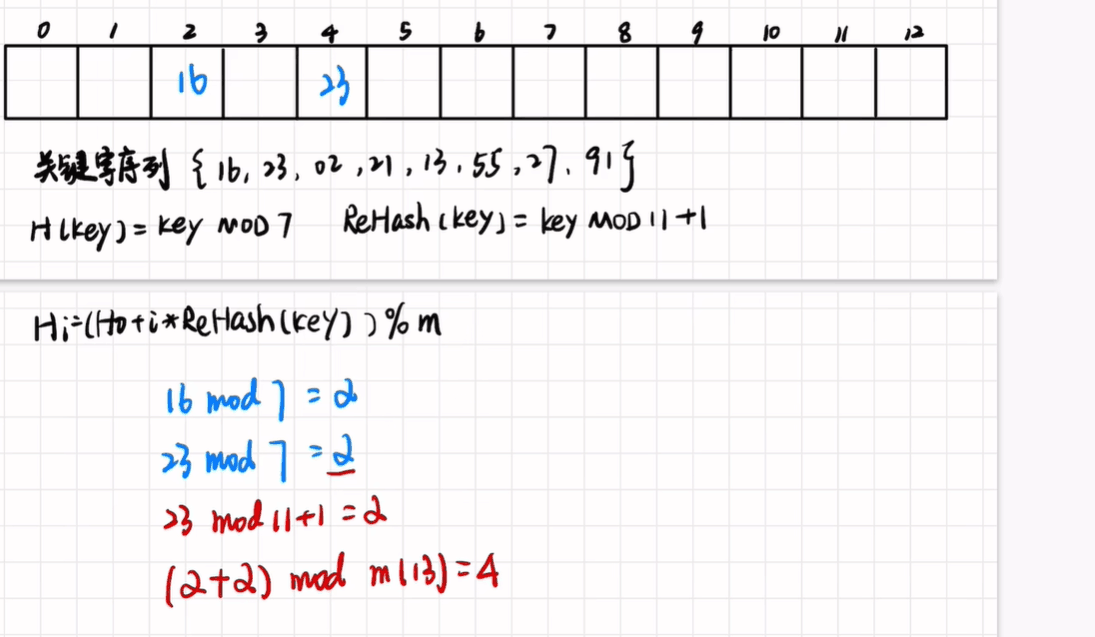 0 1 2 3 4 5 6 7 8 9 10 11 12
16 23
关键字序列 {16, 23, 02, 21, 13, 55, 27, 91}
H(key) = key MOD 7 ReHash(key) = key MOD 11 + 1
Hi=(H0+i*ReHash(key))%m
16 mod 7 = 2
23 mod 7 = 2
23 mod 11+1 = 2
(2+2) mod m(13) = 4